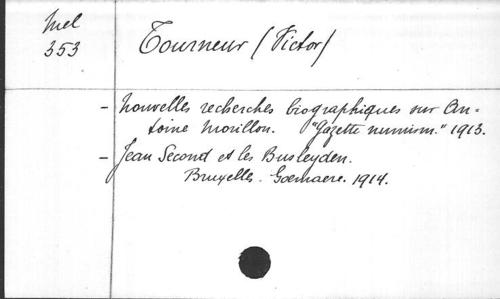 Mel
353
Tourneur (Victor)
- Nouvelles recherches biographiques sur An-
toine Morillon. "Gazette numism." 1913.
- Jean Second et les Busleyden.
Bruxelles. Goemaere. 1914.